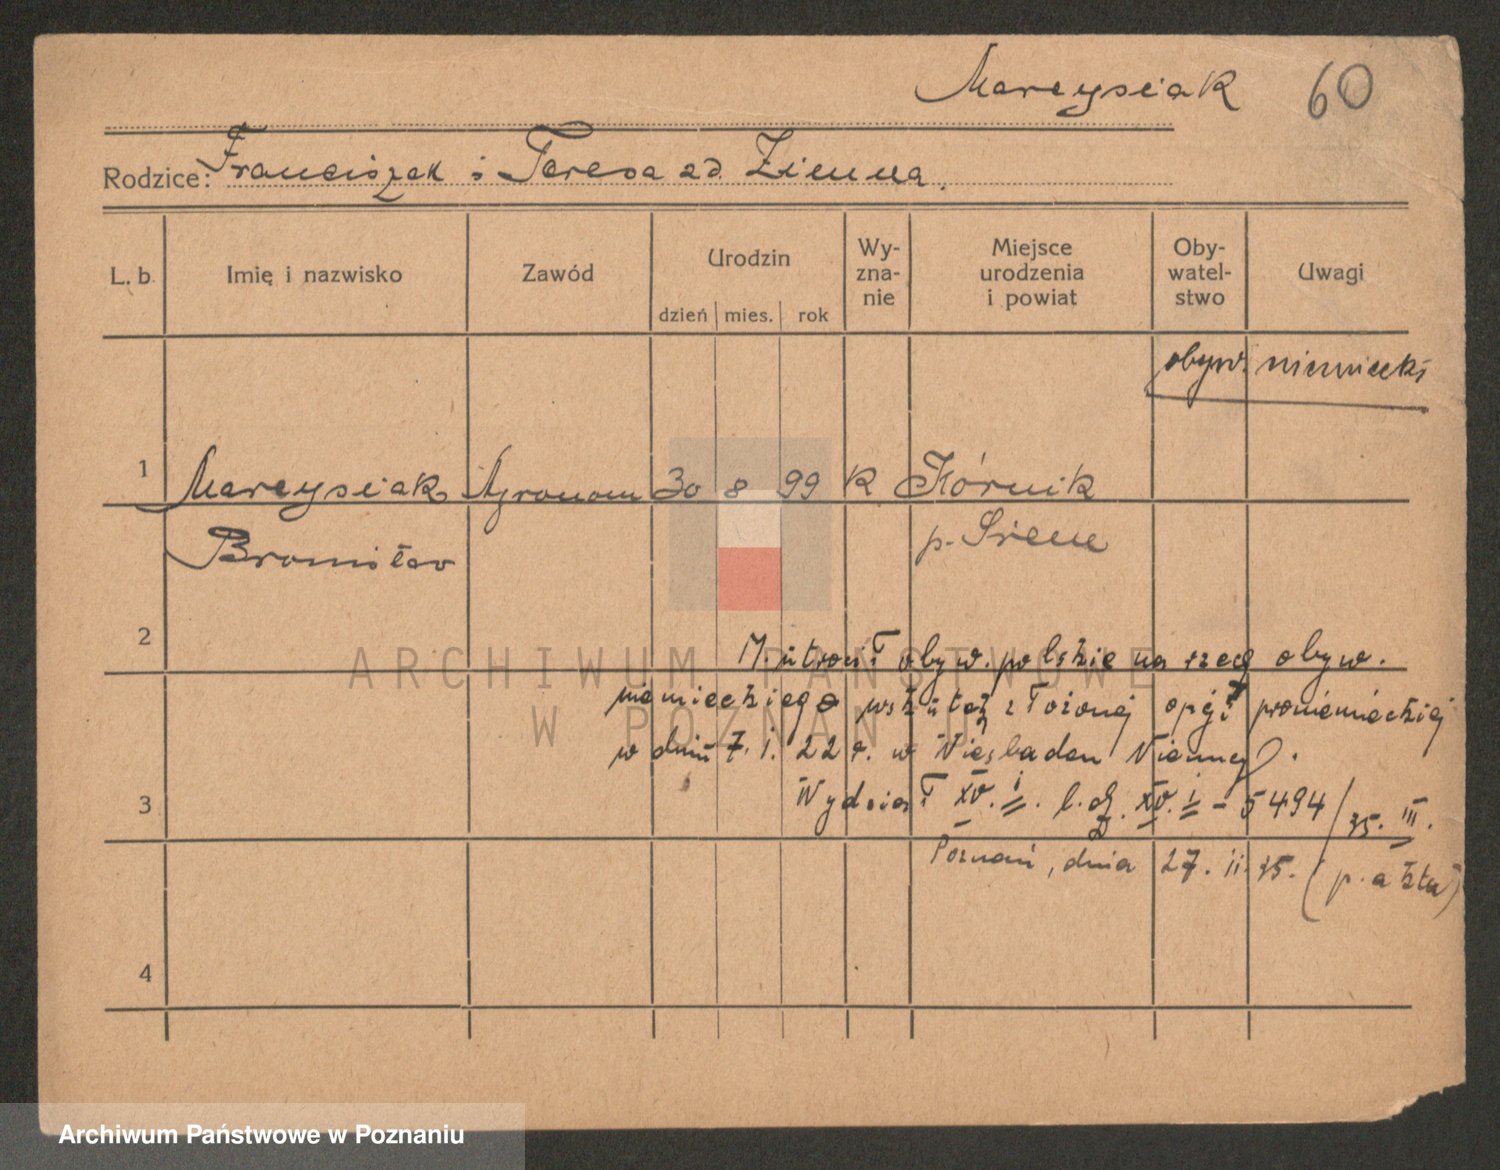 Marcysiak 60
Rodzice: Franciszek i Teresa zd. Zimna.
L. b. Imię i nazwisko Zawód Urodzin dzień mies. rok Wy-zna-nie Miejsce urodzenia i powiat Oby-watel-stwo Uwagi
obyw. niemiecki
1 Marcysiak Agronom 30 8 99 k Kórnik
Bronisław p. Śrem
2
M. utracił obyw. polskie na rzecz obyw.
niemieckiego wskutek złożonej opcji proniemieckiej
w dniu 7. I. 22 r. w Wiesbaden Niemcy.
3
Wydział XV. I. l. dz. XV. I - 5494/35. III.
Poznań, dnia 27. II. 35. (p. akta)
4
ARCHIWUM PAŃSTWOWE
W POZNANIU
Archiwum Państwowe w Poznaniu